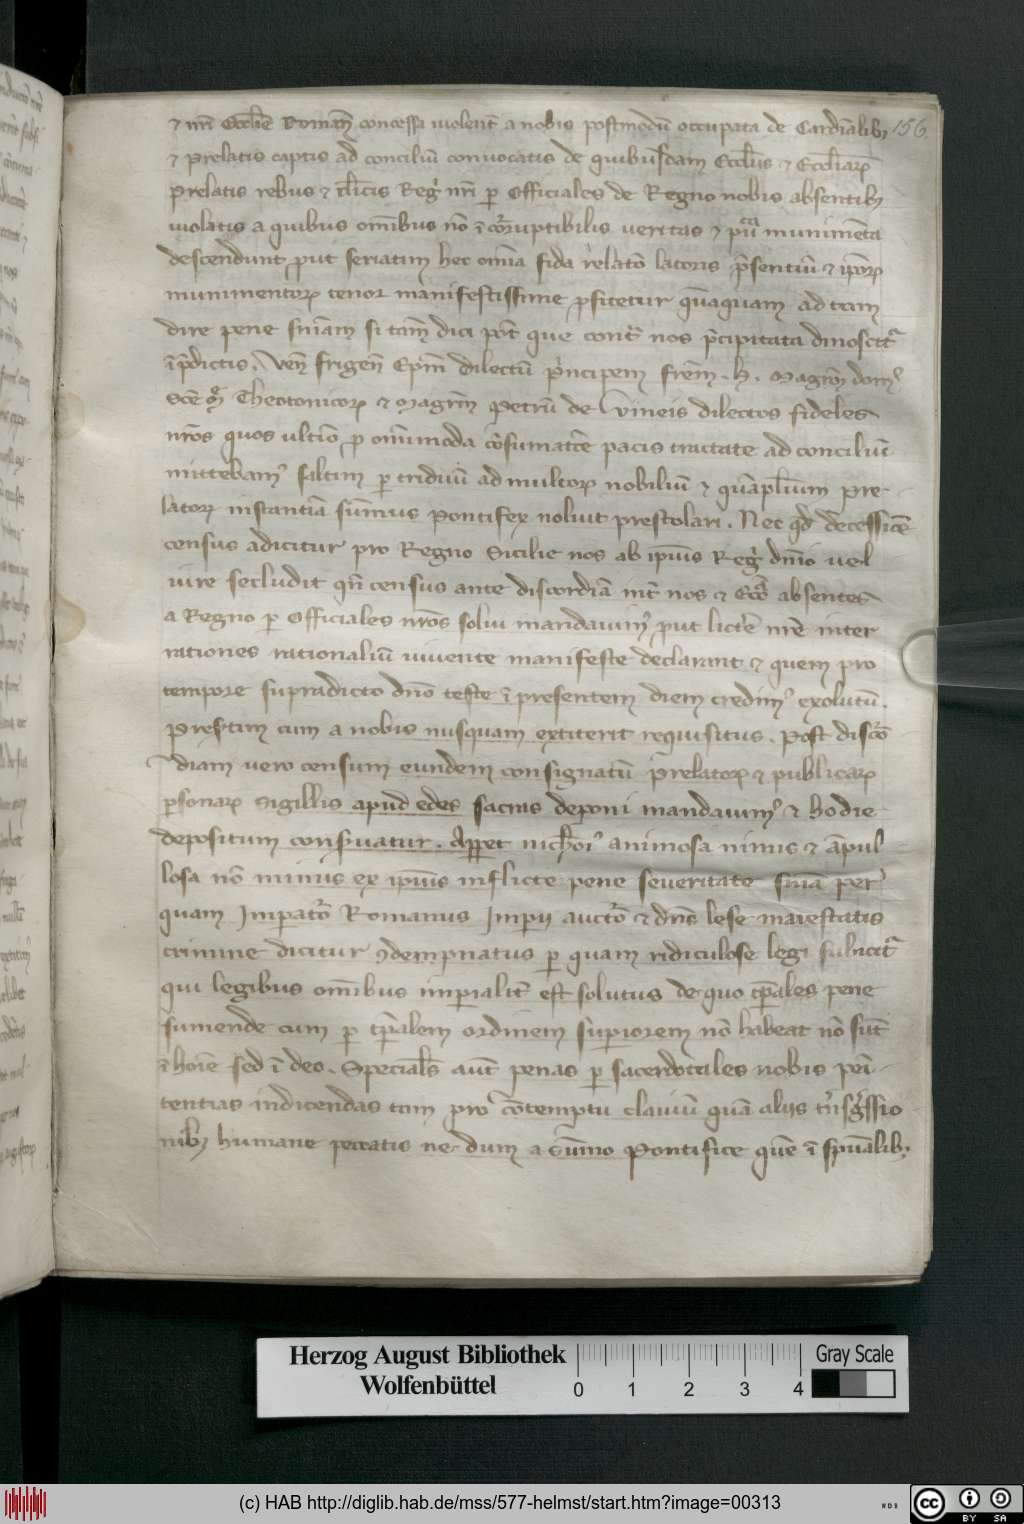 ⁊ nr̄i Ecclīe Romañ concessa uiolent̄ a nobis postmodū occupata de Cardīalibꝫ 156
⁊ prelatis captis ad conciliū conuocatis de quibusdam Eccl̄iis ⁊ Eccl̄iarꝝ
prelatis rebus ⁊ cl̄icis Regī nr̄i ꝑ Officiales de Regno nobis absentibꝫ
uiolatis a quibus om̄ibus nō ī corruptibilis ueritas ⁊ munimēta
descendunt put seriatim hec om̄ia fida relatō latoris p̄sentiū ⁊ ip̄orꝝ
munimentorꝝ tenor manifestissime ꝓfitetur q̄maquam ad eam
dire pene sn̄iam si tam̄ dici pōt que contͣ nos p̄cipitata dinoscit᷑
ī p̄dictis. Veñ frigeñ Ep̄m dilectū p̄ncipem frēm. H. Magrm̄ domꝰ
Sc̄e Theotonicorꝝ ⁊ Magrm̄ Petrū de Vineis dilectos fideles
nr̄os quos ultīo ꝓ om̄imoda cōsumatōe pacis tractate ad conciliū
mittebamꝰ saltim ꝑ triduū ad multorꝝ nobiliū ⁊ quāpl̄ium pre-
latorꝝ instantiā sūmus Pontifex noluit prestolari. Nec qd̄ decessiōe
census adicitur pro Regno Sicilie nos ab ip̄ius Regī dn̄io uel
iure secludit qn̄ census ante discordiā int̄ nos ⁊ absentes
a Regno ꝑ Officiales nr̄os solui mandauimꝰ put licte nr̄e inter
rationes rationaliū uiuente manifeste declarant ⁊ quem pro
tempore supradicto dn̄o teste ī presentem diem credimꝰ exolutū.
Presertim cum a nobis nusquam extiterit requisitus. Post discō-
diam uero censum eundem consignatū prelatorꝝ ⁊ publicarꝝ
ꝑsonarꝝ sigillis apud edes sacras deponi mandauimꝰ ⁊ hodie
depositum consꝑuatur. Apparet animosa nimis ⁊ āpul
losa nō minus ex ip̄ius inflicte pene seueritate sn̄ia per
quam Imperatō Romanus Impii auctō ⁊ dn̄s lese maiestatis
crimine dicitur ꝯdempnatus ꝑ quam ridiculose legi subicit᷑
qui legibus om̄ibus imperialit̄ est solutus de quo tp̄ales pene
sumende cum ꝑ tp̄alem ordinem superiorem nō habeat nō sūt
ī hoīe sed ī deo. Speciales aut̄ penas ꝑ sacerdotales nobis peī-
tentias indicendas tam pro cōtemptu clauiū quā aliis tn̄sgressio
nibꝫ humane peccatis ne dum a Sūmo Pontifice quē ī spūalibꝫ
Herzog August Bibliothek
Wolfenbüttel
0 1 2 3 4
Gray Scale
(c) HAB http://diglib.hab.de/mss/577-helmst/start.htm?image=00313
WDB
cc BY SA